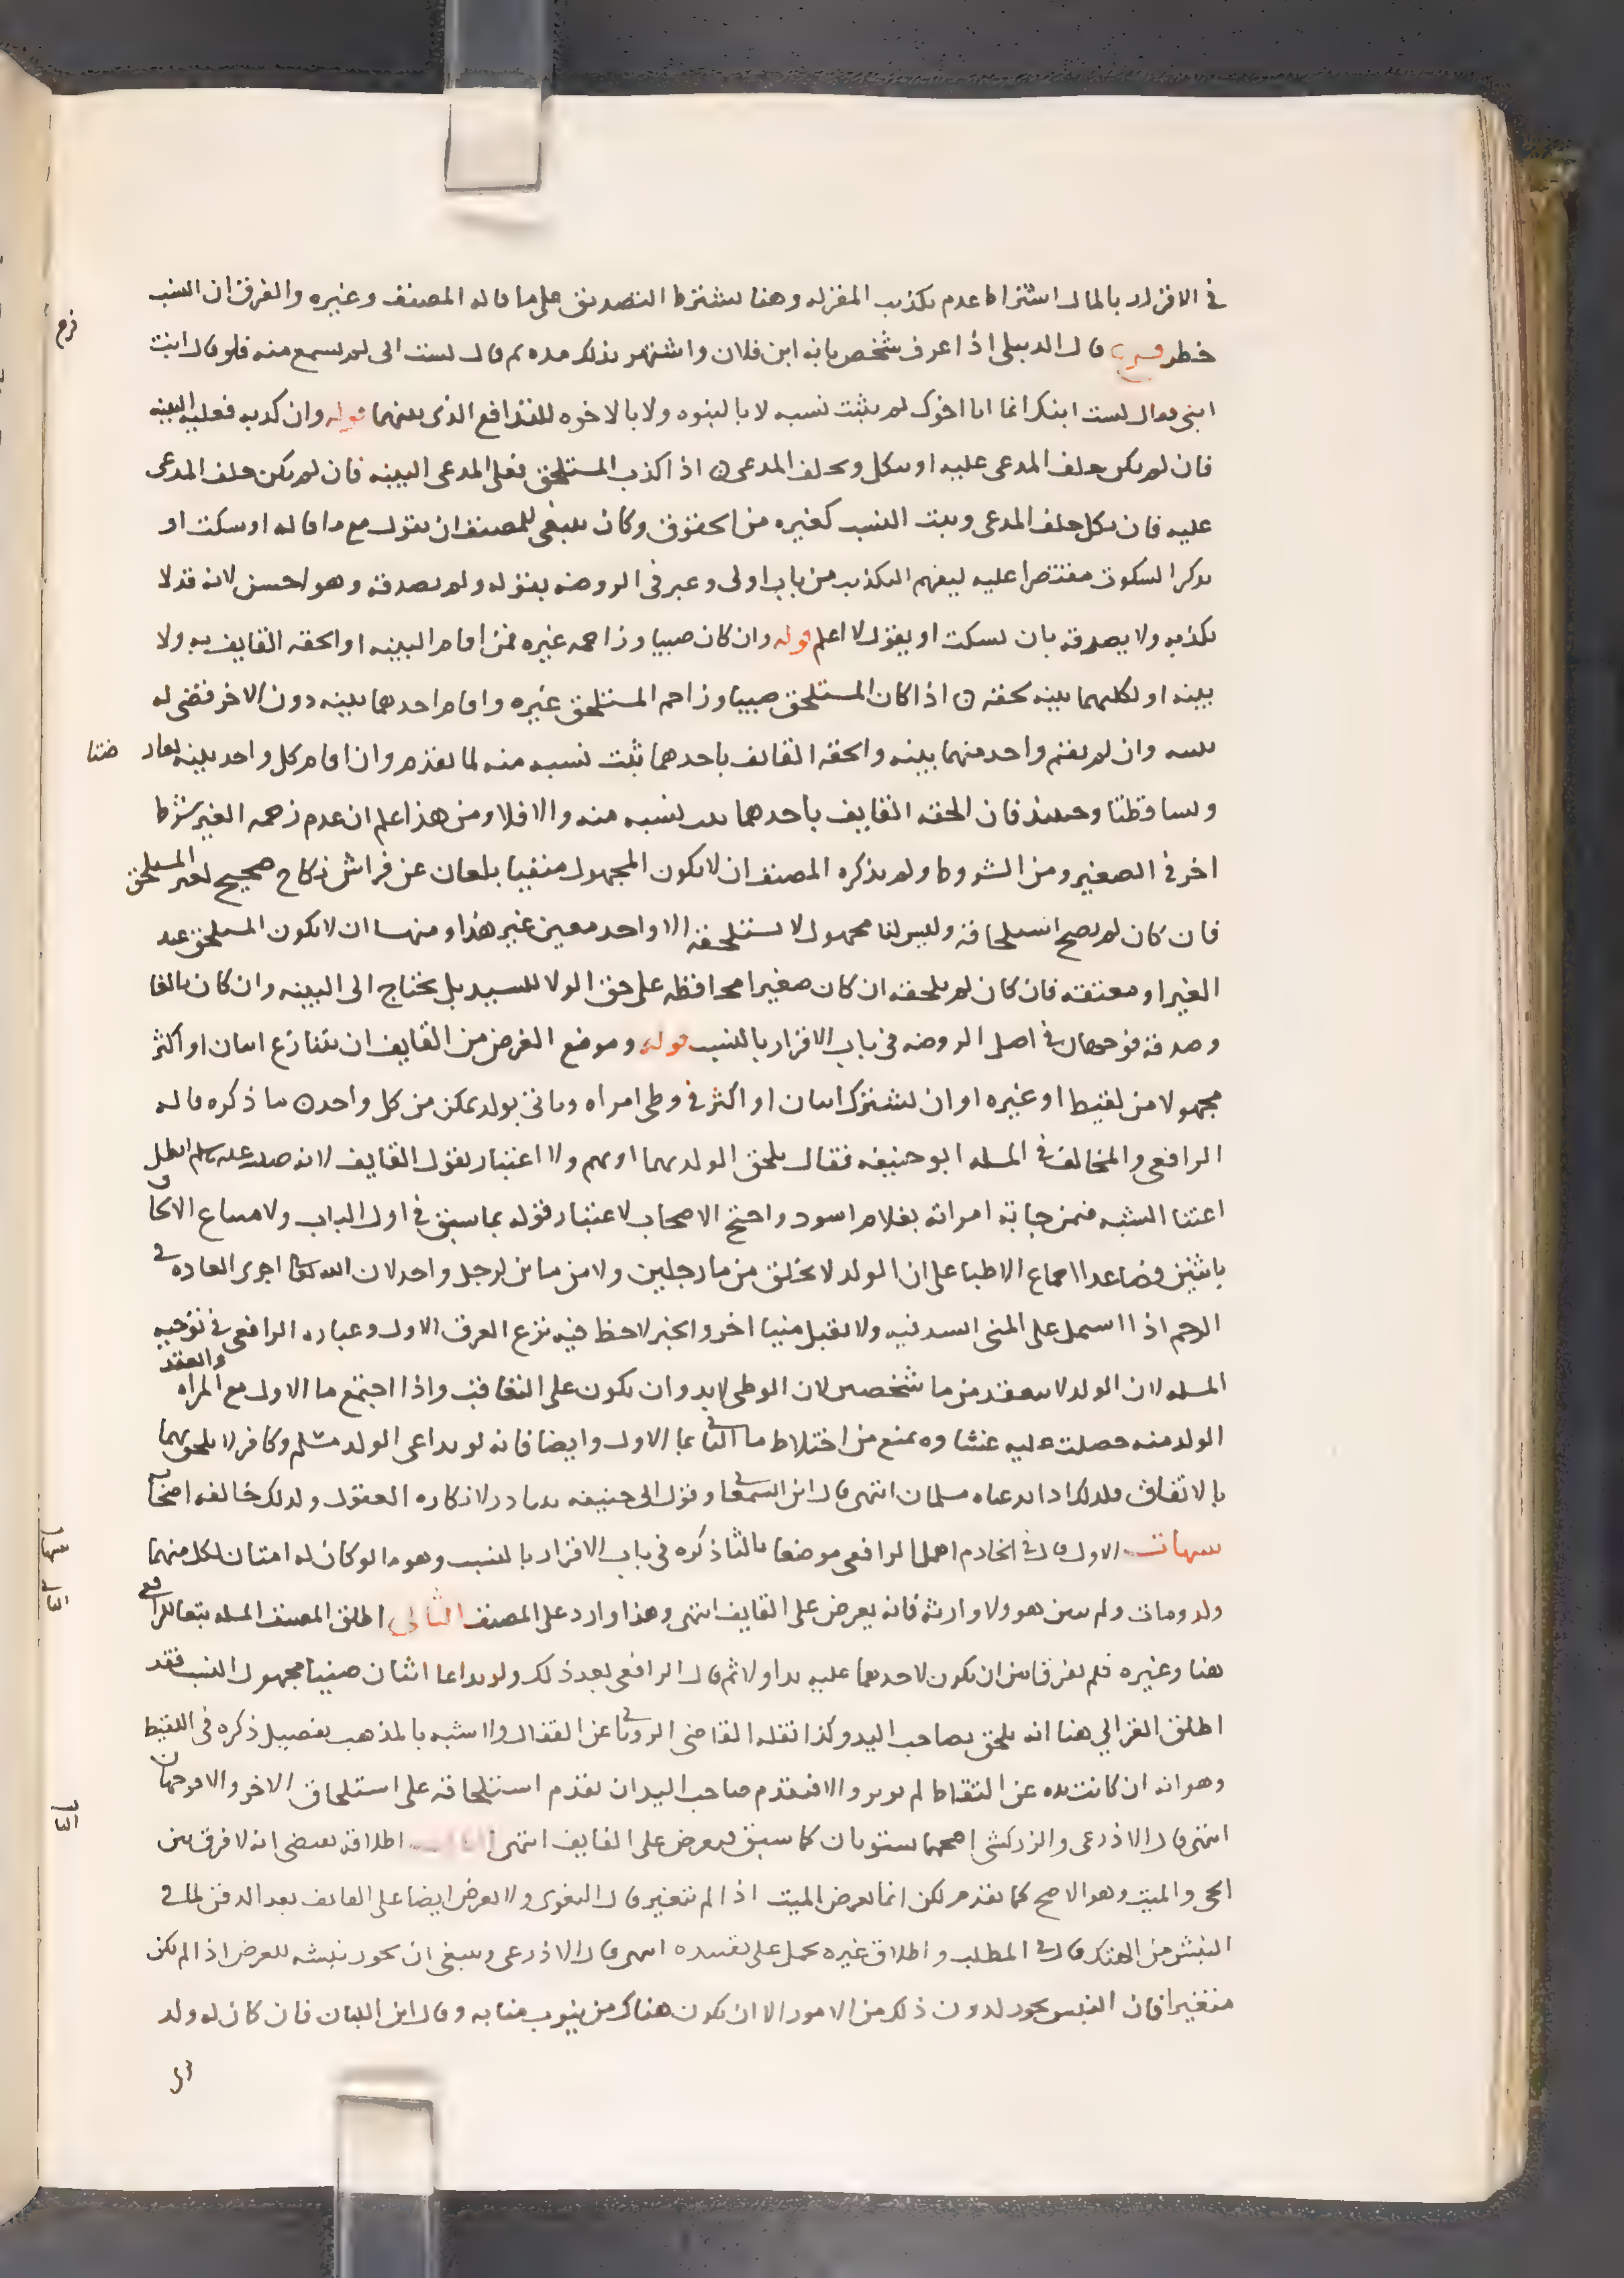 في الاقرار بالمال اشتراط عدم تكذيب المقر له وهنا يشترط التصديق على ما قاله المصنف وغيره والفرق ان النسب
خطر فرع قال الدبيلي اذا عرف شخص بانه ابن فلان واشتهر بذلك مده ثم قال لست ابني لم يسمع منه فلو قال انت
ابني فقال لست ابنك انما انا اخوك لم يثبت نسبه لا بالبنوه ولا بالاخوه للتدافع الذي بينهما قوله وان كذبه فعليه البينه
فان لم يكن حلف المدعى عليه او ينكل ويحلف المدعي ن اذا اكذب المستلحق فعلى المدعي البينه فان لم يكن حلف المدعى
عليه فان نكل حلف المدعي وثبت النسب كغيره من الحقوق وكان ينبغي للمصنف ان يقول مع ما قاله او سكت او
يذكر السكوت مقتصرا عليه ليفهم التكذيب من باب اولى وعبر في الروضه بقوله ولم يصدقه وهو احسن لانه قد لا
يكذبه ولا يصدقه بان يسكت او يقول لا اعلم قوله وان كان صبيا وزاحمه غيره فمن اقام البينه او الحقه القايف به ولا
بينه او لكليهما بينه لحقه ن اذا كان المستلحق صبيا وزاحم المستلحق غيره واقام احدهما بينه دون الاخر قضي له
ببينته وان لم يقم واحد منهما بينه والحقه القايف باحدهما ثبت نسبه منه لما تقدم وان اقام كل واحد بينه تعار ضتا
وتساقطتا وحينئذ فان الحقه القايف باحدهما ثبت نسبه منه والا فلا ومن هذا علم ان عدم زحمه الغير شرط
اخر في الصغير ومن الشروط ولم يذكره المصنف ان لا يكون المجهول منفيا بلعان عن فراش نكاح صحيح لغير المستلحق
فان كان لم يصح استلحاقه وليس لنا مجهول لا يستلحقه الا واحد معين غير هذا ومنها ان لا يكون المستلحق عبد
الغير او معتقه فان كان لم يلحقه ان كان صغيرا محافظه على حق الولا للسيد بل يحتاج الى البينه وان كان بالغا
وصدقه فوجهان في اصل الروضه في باب الاقرار بالنسب قوله وموضع الغرض من القايف ان يتنازع اثنان او اكثر
مجهولا من لقيط او غيره او ان يشترك اثنان او اكثر في وطي امراه وتاتي بولد يمكن من كل واحد ن ما ذكره قاله
الرافعي والمخالف في المسله ابو حنيفه فقال يلحق الولد بهما او بهم ولا اعتبار بقول القايف لانه صلى الله عليه وسلم ابطل
اعتنا الشبه فيمن جات به امراته بغلام اسود واحتج الاصحاب لاعتبار قوله بما سبق في اول الباب ولامتناع الالحاق
باثنين فصاعدا اجماع الاطبا على ان الولد لا يخلق من ما رجلين ولا من ماين لرجل واحد لان الله تعالى اجرى العاده في
الرحم اذا اشتمل على المني انسد فيه ولا يقبل منيا اخر والخبر لاحظ فيه نزع العرق الاول وعباره الرافعي في توجيه
المسله لان الولد لا ينعقد من ما شخصين لان الوطي لا بد وان يكون على التعاقب واذا اجتمع ما الاول مع المراه وانعقد
الولد منه حصلت عليه غشاوه تمنع من اختلاط ما الثاني بما الاول وايضا فانه لو تداعى الولد مسلم وكافر لا يلحق بهما
بالاتفاق فلذلك اذا تداعاه مسلمان انتهى قال ابن السمعاني وقول ابي حنيفه تتبادر لانكاره العقول ولذلك خالفه اصحابه
تنبيهات الاول قال في الخادم اهمل الرافعي موضعا ثالثا ذكره في باب الاقرار بالنسب وهو ما لو كان له امتان لكل منهما
ولد ومات ولم يبين هو ولا وارثه فانه يعرض على القايف انتهى وهذا وارد على المصنف الثاني اطلق المصنف المسله تبعا للرافعي
هنا وغيره فلم يفرقا بين ان يكون لاحدهما عليه يد او لا ثم قال الرافعي بعد ذلك ولو تداعا اثنان صبيا مجهول النسب فقد
اطلق الغزالي هنا انه يلحق بصاحب اليد وكذا نقله القاضي الروياني عن القفال والاشبه بالمذهب تفصيل ذكره في اللقيط
وهو انه ان كانت يده عن التقاط لم يوثر والا فيقدم صاحب اليد ان تقدم استلحاقه على استلحاق الاخر والا فوجهان
انتهى قال الاذرعي والزركشي اصحهما يستويان كما سبق فيعرض على القايف انتهى الثالث اطلاقه يقتضي انه لا فرق بين
الحي والميت وهو الاصح كما تقدم لكن انما يعرض الميت اذا لم يتغير قال البغوي ولا يعرض ايضا على القايف بعد الدفن لما في
النبش من الهتك قال في المطلب واطلاق غيره يحمل على تقييده انتهى قال الاذرعي وينبغي ان يجوز نبشه للعرض اذا لم يكن
متغيرا فان النبش يجوز لدون ذلك من الامور الا ان يكون هناك من ينوب منابه وقال ابن اللبان فان كان له ولد